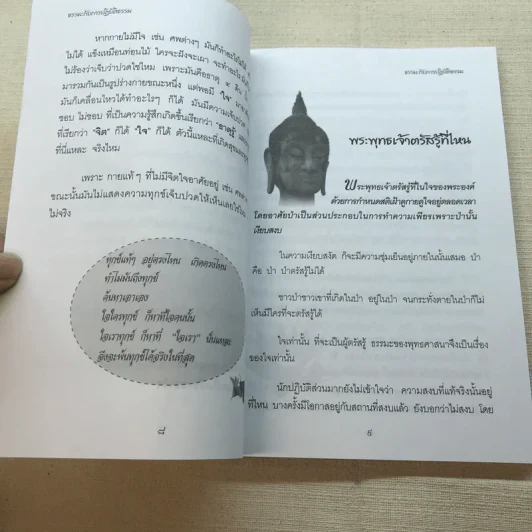 ธรรมะกับการปฏิบัติธรรม
หากกายไม่มีใจ เช่น ศพต่างๆ มันก็ทำอะไรไม่ได้
ไม่ได้ แข็งเหมือนท่อนไม้ ใครจะฝังจะเผา จะทำอะไร
ไม่ร้องว่าเจ็บว่าปวดใช่ไหม เพราะมันคือธาตุ ๔ ดิน
มารวมกันเป็นรูปร่างกายขณะหนึ่ง แต่พอมี "ใจ"
มันก็เคลื่อนไหวได้ทำอะไรๆ ก็ได้ มันมีความ
ชอบ ไม่ชอบ ที่เป็นความรู้สึกเกิดขึ้นเรียกว่า "ธาตุรู้"
ที่เรียกว่า "จิต" ก็ได้ "ใจ" ก็ได้ ตัวนี้แหละที่เกิด
ที่นี่แหละ จริงไหม
เพราะ กายแท้ๆ ที่ไม่มีจิตใจอาศัยอยู่ เช่น ศพ
ขณะนั้นมันไม่แสดงความทุกข์เจ็บปวดให้เห็นเลยใช่ไหม
ไม่จริง
ทุกข์แท้ๆ อยู่ตรงไหน เกิดตรงไหน
ทำไมมันถึงทุกข์
ค้นหาเอาเอง
ใจใครทุกข์ ก็หาที่ใจคนนั้น
ใจเราทุกข์ ก็หาที่ "ใจเรา" นั่นแหละ
จึงจะพ้นทุกข์ได้จริงในที่สุด
๘
ธรรมะกับการปฏิบัติธรรม
พระพุทธเจ้าตรัสรู้ที่ไหน
พระพุทธเจ้าตรัสรู้ที่ใจของพระองค์
ด้วยการกำหนดสติเฝ้าดูกายดูใจอยู่ตลอดเวลา
โดยอาศัยป่าเป็นส่วนประกอบในการทำความเพียรเพราะป่านั้น
เงียบสงบ
ในความเงียบสงัด ก็จะมีความชุ่มเย็นอยู่ภายในนั้นเสมอ ป่า
คือ ป่า ป่าตรัสรู้ไม่ได้
ชาวป่าชาวเขาที่เกิดในป่า อยู่ในป่า จนกระทั่งตายในป่าก็ไม่
เห็นมีใครที่จะตรัสรู้ได้
ใจเท่านั้น ที่จะเป็นผู้ตรัสรู้ ธรรมะของพุทธศาสนาจึงเป็นเรื่อง
ของใจเท่านั้น
นักปฏิบัติส่วนมากยังไม่เข้าใจว่า ความสงบที่แท้จริงนั้นอยู่
ที่ไหน บางครั้งมีโอกาสอยู่กับสถานที่สงบแล้ว ยังบอกว่าไม่สงบ โดย
๙